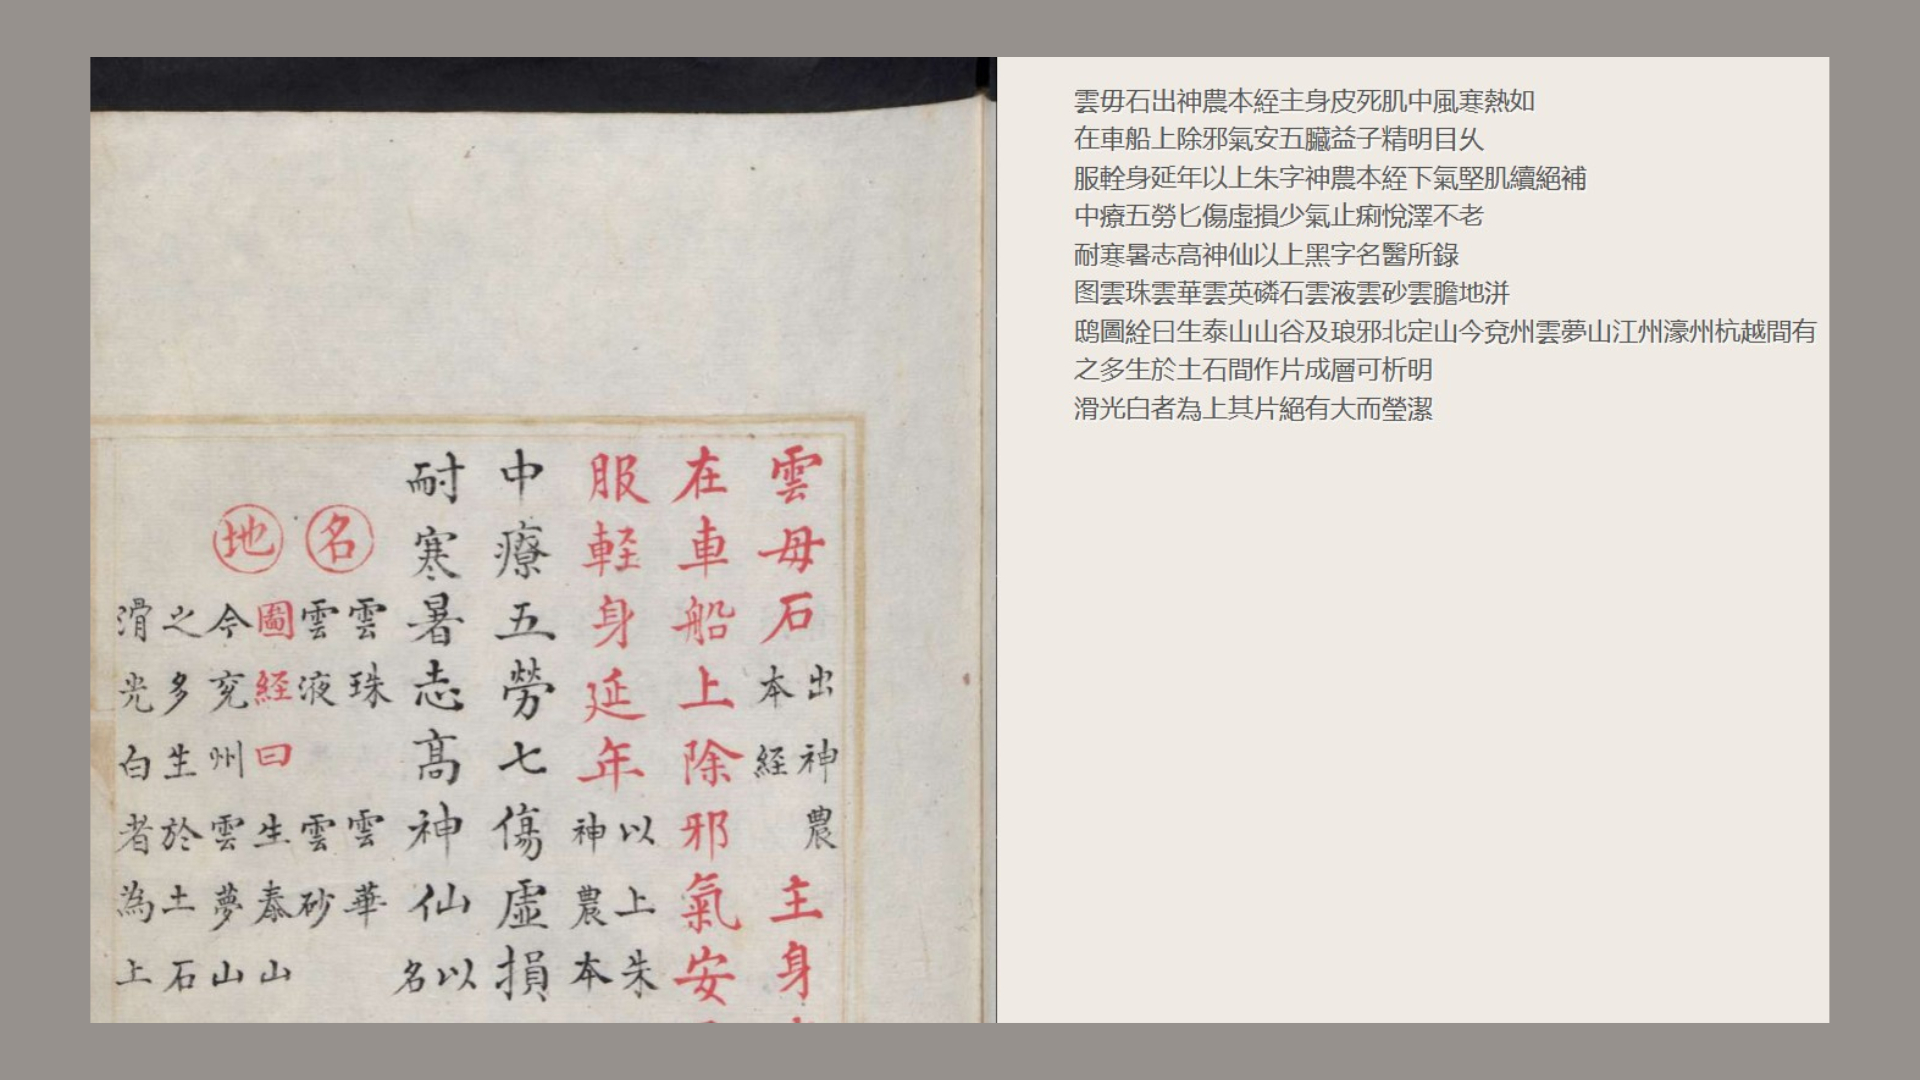 雲母石出神農本経主身
在車船上除邪氣安
服軽身延年以上朱神農本
中療五勞七傷虛損
耐寒暑志高神仙以名
名雲珠雲華
雲液雲砂
地圖経曰生泰山
今兖州雲夢山
之多生於土石
滑光白者為上
雲毋石出神農本絰主身皮死肌中風寒熱如
在車船上除邪氣安五臟益子精明目乆
服輇身延年以上朱字神農本絰下氣堅肌續絕補
中療五勞匕傷虛損少氣止痢悅澤不老
耐寒暑志高神仙以上黑字名醫所錄
图雲珠雲華雲英磷石雲液雲砂雲膽地洴
鸱圖絟曰生泰山山谷及琅邪北定山今兗州雲夢山江州濠州杭越間有
之多生於土石間作片成層可析明
滑光白者為上其片絕有大而瑩潔